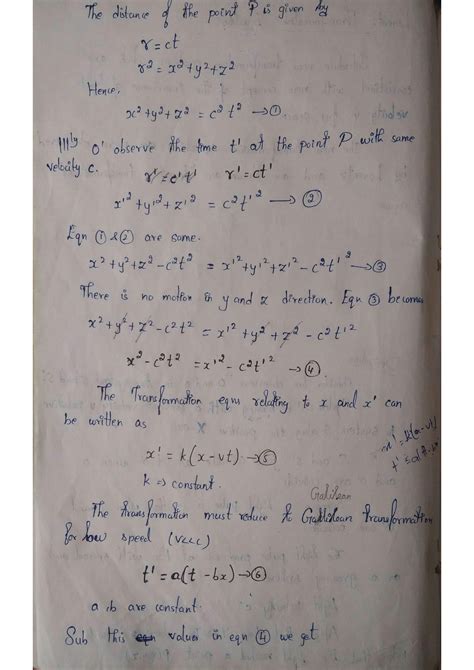 The distance of the point P is given by
r = ct
r² = x² + y² + z²
Hence,
x² + y² + z² = c² t² → ①
|||ly O' observe the time t' at the point P with same
velocity c. r' = c't' r' = ct'
x'² + y'² + z'² = c² t'² → ②
Eqn ① & ② are same.
x² + y² + z² - c² t² = x'² + y'² + z'² - c² t'² → ③
There is no motion in y and z direction. Eqn ③ becomes
x² + y² + z² - c² t² = x'² + y² + z² - c² t'²
x² - c² t² = x'² - c² t'² → ④
The Transformation eqns relating to x and x' can
be written as
x' = k(x-vt)
x' = k(x - vt) → ⑤
k => constant.
Galilean
The transformation must reduce to Galilean transformation
for low speed (v<<c)
t' = a(t - bx) → ⑥
a, b are constant.
Sub this eqn values in eqn ④ we get